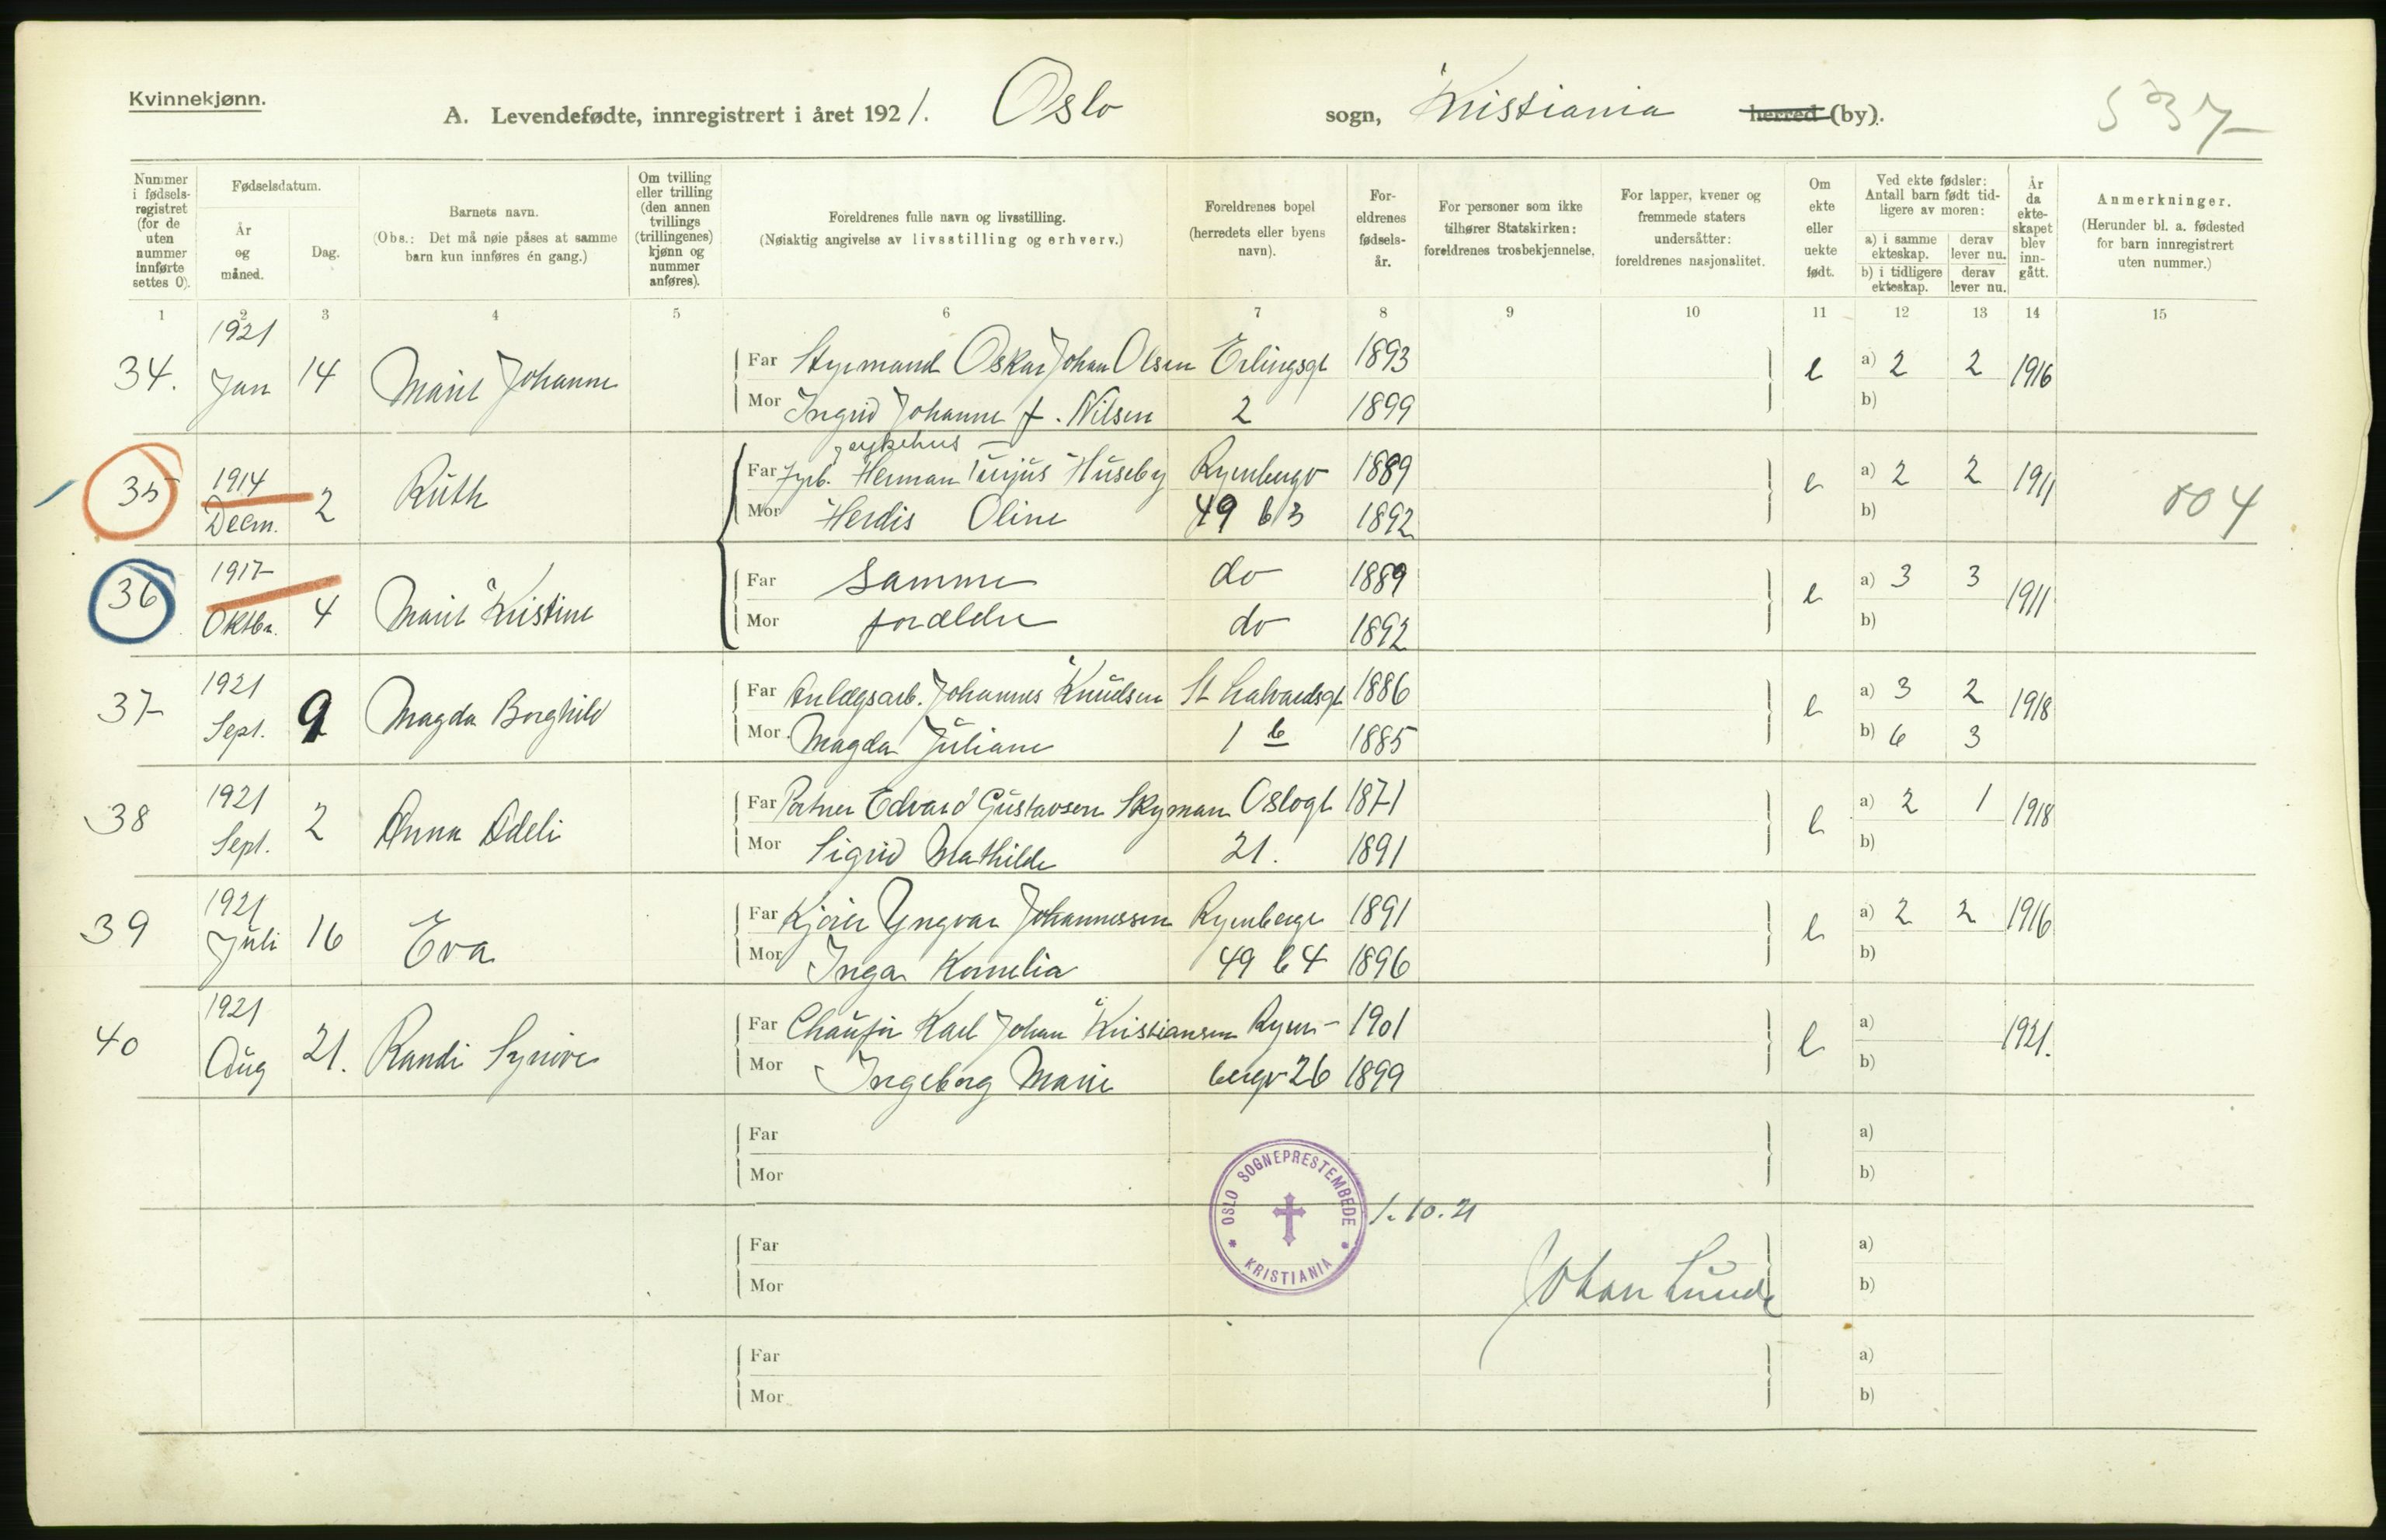 Kvinnekjønn.
A. Levendefødte, innregistrert i året 1921. Oslo sogn, Kristiania herred (by).
537
Nummer i fødselsregistret (for de uten nummer innførte settes 0).
Fødselsdatum.
År og måned.
Dag.
Barnets navn.
(Obs.: Det må nøie påses at samme barn kun innføres én gang.)
Om tvilling eller trilling (den annen tvillings (trillingenes) kjønn og nummer anføres).
Foreldrenes fulle navn og livsstilling.
(Nøiaktig angivelse av livsstilling og erhverv.)
Foreldrenes bopel (herredets eller byens navn).
Foreldrenes fødselsår.
For personer som ikke tilhører Statskirken: foreldrenes trosbekjennelse.
For lapper, kvener og fremmede staters undersåtter: foreldrenes nasjonalitet.
Om ekte eller uekte født.
Ved ekte fødsler: Antall barn født tidligere av moren:
a) i samme ekteskap.
derav lever nu.
b) i tidligere ekteskap.
derav lever nu.
År da ekteskapet blev inngått.
Anmerkninger.
(Herunder bl. a. fødested for barn innregistrert uten nummer.)
1 2 3 4 5 6 7 8 9 10 11 12 13 14 15
34. 1921 Jan 14 Marit Johanne
Far Styrmand Oskar Johan Olsen Erlingsgt 1893 e a) 2 2 1916
Mor Ingrid Johanne f. Nilsen 2 1899 b)
35 1914 Decm. 2 Ruth
sykehus
Far Fyrb. Herman Turjus Huseby Ryenbergv 1889 e a) 2 2 1911
Mor Herdis Oline 49 b 3 1892 b)
004
36 1917 Oktbr. 4 Marit Kristine
Far samme do 1889 e a) 3 3 1911
Mor forældre do 1892 b)
37 1921 Sept. 9 Magda Borghild
Far Anlægsarb. Johannes Knudsen St Halvardsgt 1886 e a) 3 2 1918
Mor Magda Juliane 1 b 1885 b) 6 3
38 1921 Sept. 2 Anna Adeli
Far Portner Edvard Gustavsen Skyman Oslogt 1871 e a) 2 1 1918
Mor Sigrid Mathilde 21. 1891 b)
39 1921 Juli 16 Eva
Far Kjører Yngvar Johannessen Ryenbergv 1891 e a) 2 2 1916
Mor Inga Kornelia 49 b 4 1896 b)
40 1921 Aug 21. Randi Synøve
Far Chauför Karl Johan Kristiansen Ryen- 1901 e a) 1921.
Mor Ingeborg Marie bergv 26 1899 b)
Far a)
Mor b)
OSLO SOGNEPRESTEMBEDE
KRISTIANIA
1.10.21
Far a)
Johan Lunde
Mor b)
Far a)
Mor b)